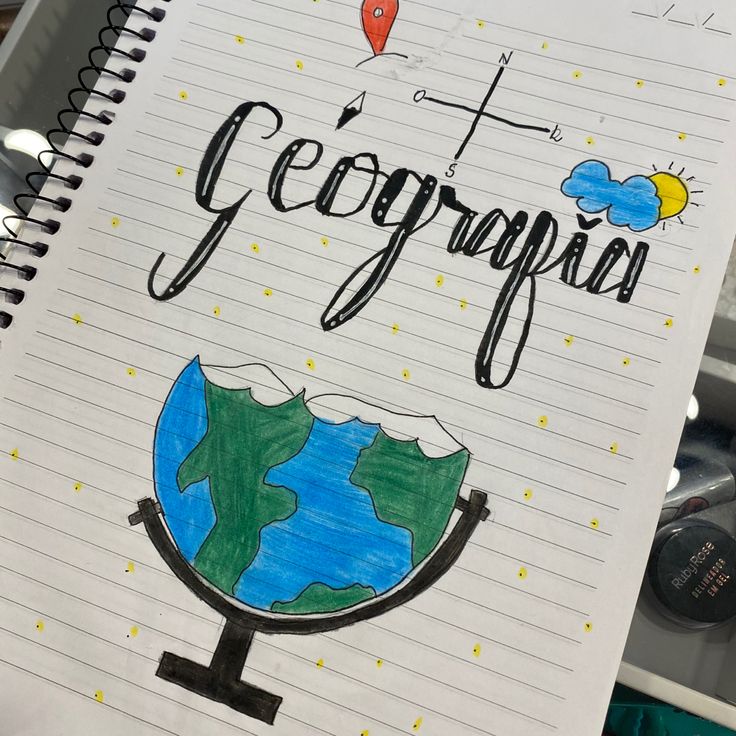 N
O
S
Geografia
RubyRose
DELINEADOR
EM GEL